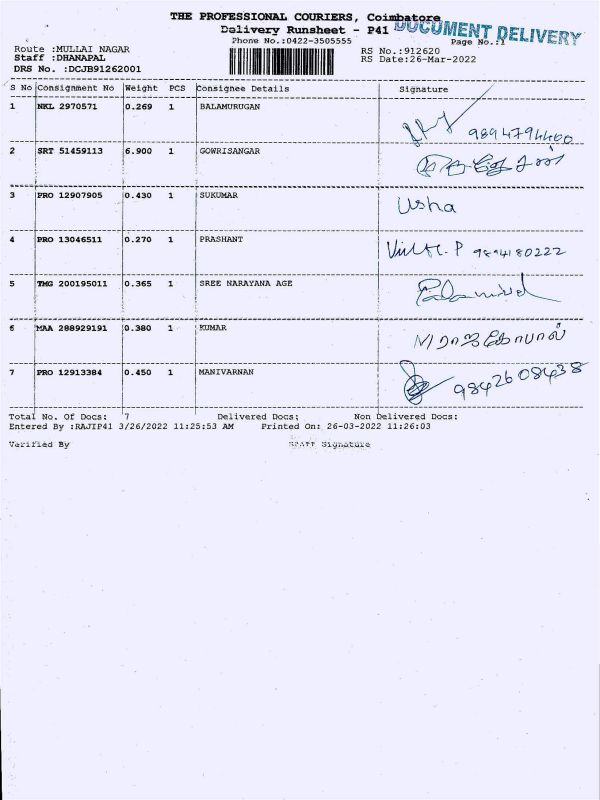 THE PROFESSIONAL COURIERS, Coimbatore
Delivery Runsheet - P41 DOCUMENT DELIVERY
Phone No.:0422-3505555 Page No.:1
Route :MULLAI NAGAR RS No.:912620
Staff :DHANAPAL RS Date:26-Mar-2022
DRS No. :DCJB91262001
S No Consignment No Weight PCS Consignee Details Signature
1 NKL 2970571 0.269 1 BALAMURUGAN
9894794460
2 SRT 51459113 6.900 1 GOWRISANGAR
3 PRO 12907905 0.430 1 SUKUMAR Usha
4 PRO 13046511 0.270 1 PRASHANT 9894180222
5 TMG 200195011 0.365 1 SREE NARAYANA AGE
6 MAA 288929191 0.380 1 KUMAR ராஜகோபால்
7 PRO 12913384 0.450 1 MANIVARNAN 9842608438
Total No. Of Docs: 7 Delivered Docs: Non Delivered Docs:
Entered By :RAJIP41 3/26/2022 11:25:53 AM Printed On: 26-03-2022 11:26:03
Verified By STAFF Signature